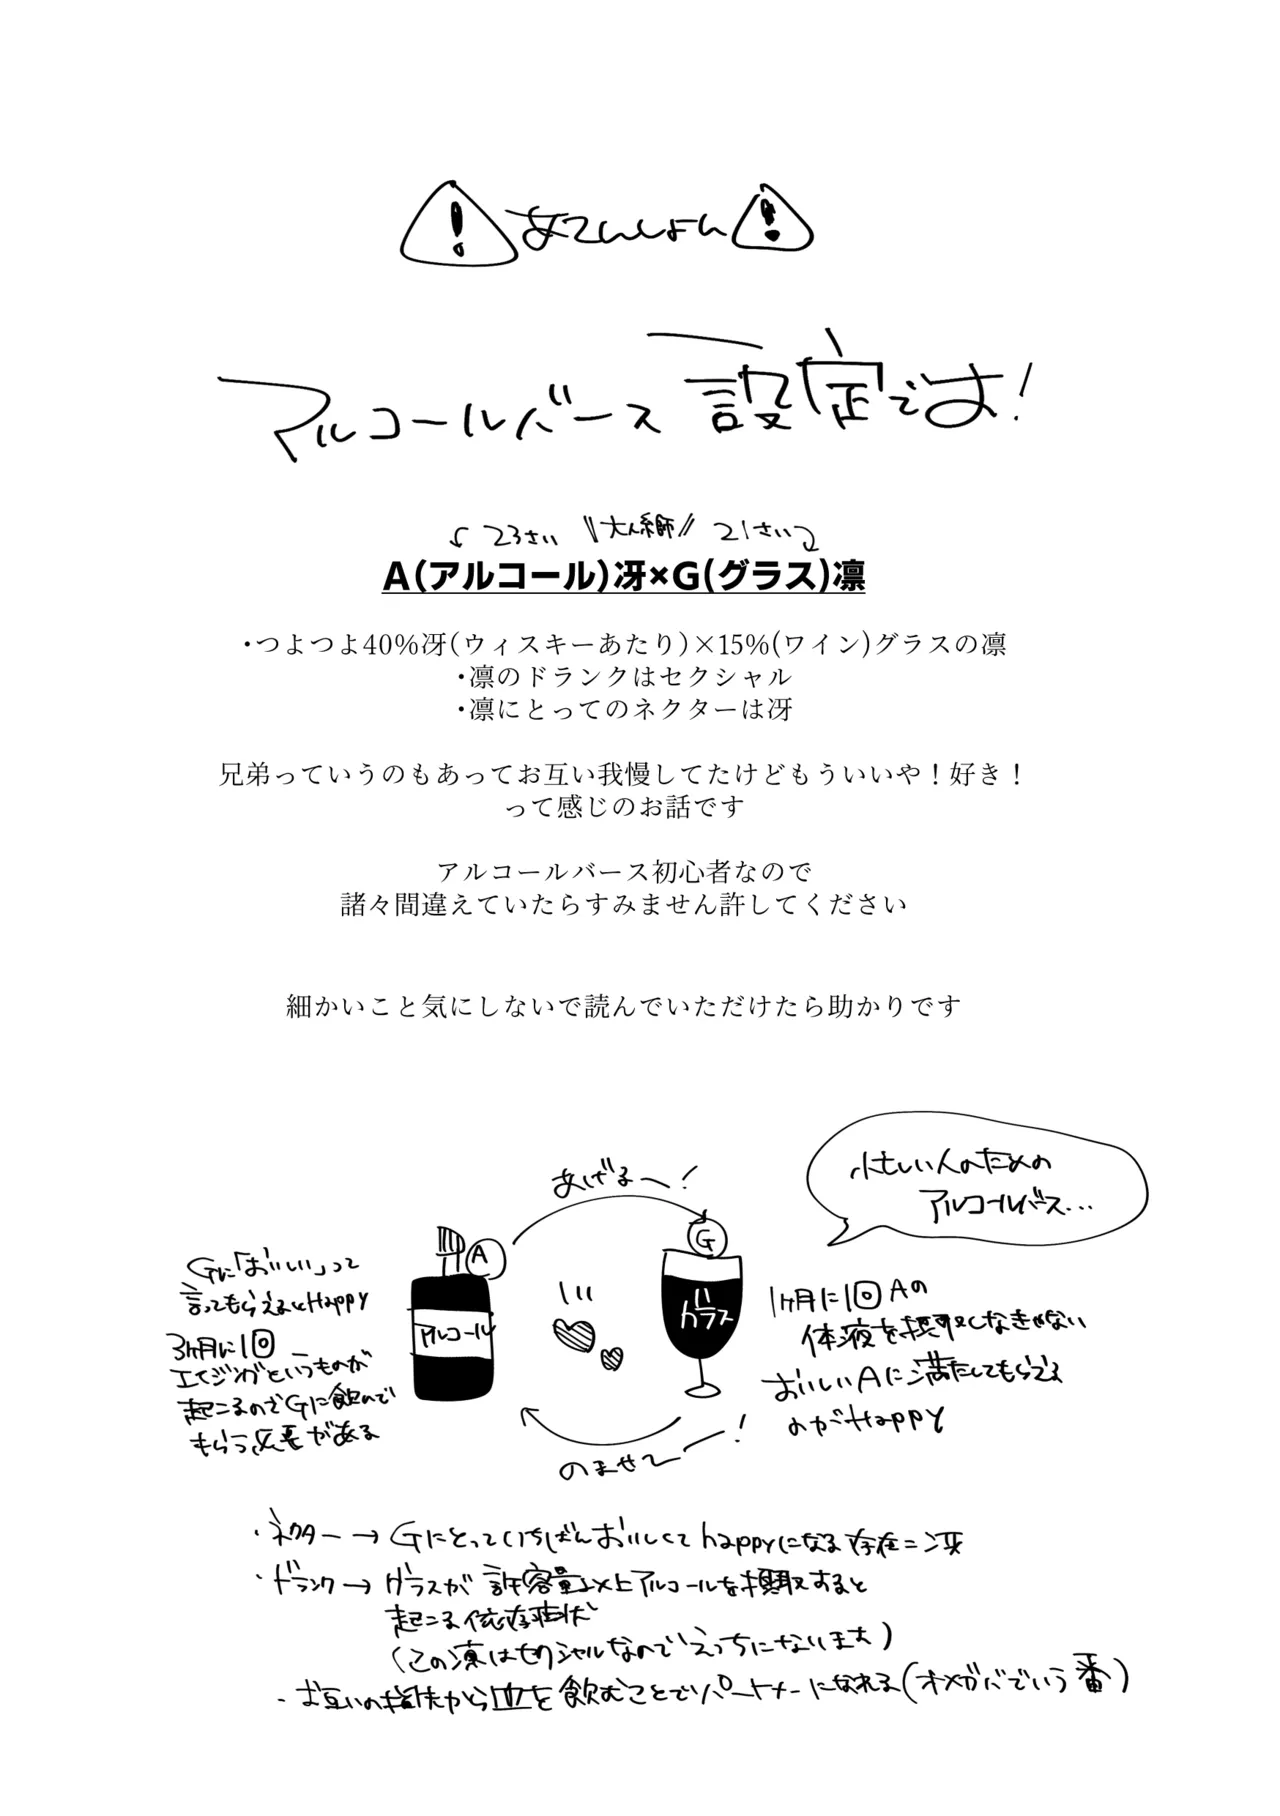 あてんしょん
アルコールバース設定です!
23さい 《大人糸師》 21さい
A(アルコール)冴×G(グラス)凛
・つよつよ40%冴(ウィスキーあたり)×15%(ワイン)グラスの凛
・凛のドランクはセクシャル
・凛にとってのネクターは冴
兄弟っていうのもあってお互い我慢してたけどもういいや!好き!
って感じのお話です
アルコールバース初心者なので
諸々間違えていたらすみません許してください
細かいこと気にしないで読んでいただけたら助かりです
忙しい人のための
アルコールバース…
あげる〜!
A
G
アルコール
グラス
Gに「おいしい」って
言ってもらえるとHappy
3ヶ月に1回
エイジングというものが
起こるのでGに飲んで
もらう必要がある
1ヶ月に1回Aの
体液を摂取しなきゃない
おいしいAに満たしてもらえる
のがHappy
のませて〜!
・ネクター→Gにとっていちばんおいしくてhappyになる存在=冴
・ドランク→グラスが許容量以上アルコールを摂取すると
起こる依存症状
(この凛はセクシャルなのでえっちになります)
・お互いの指先から血を飲むことでパートナーになれる(オメガバでいう番)